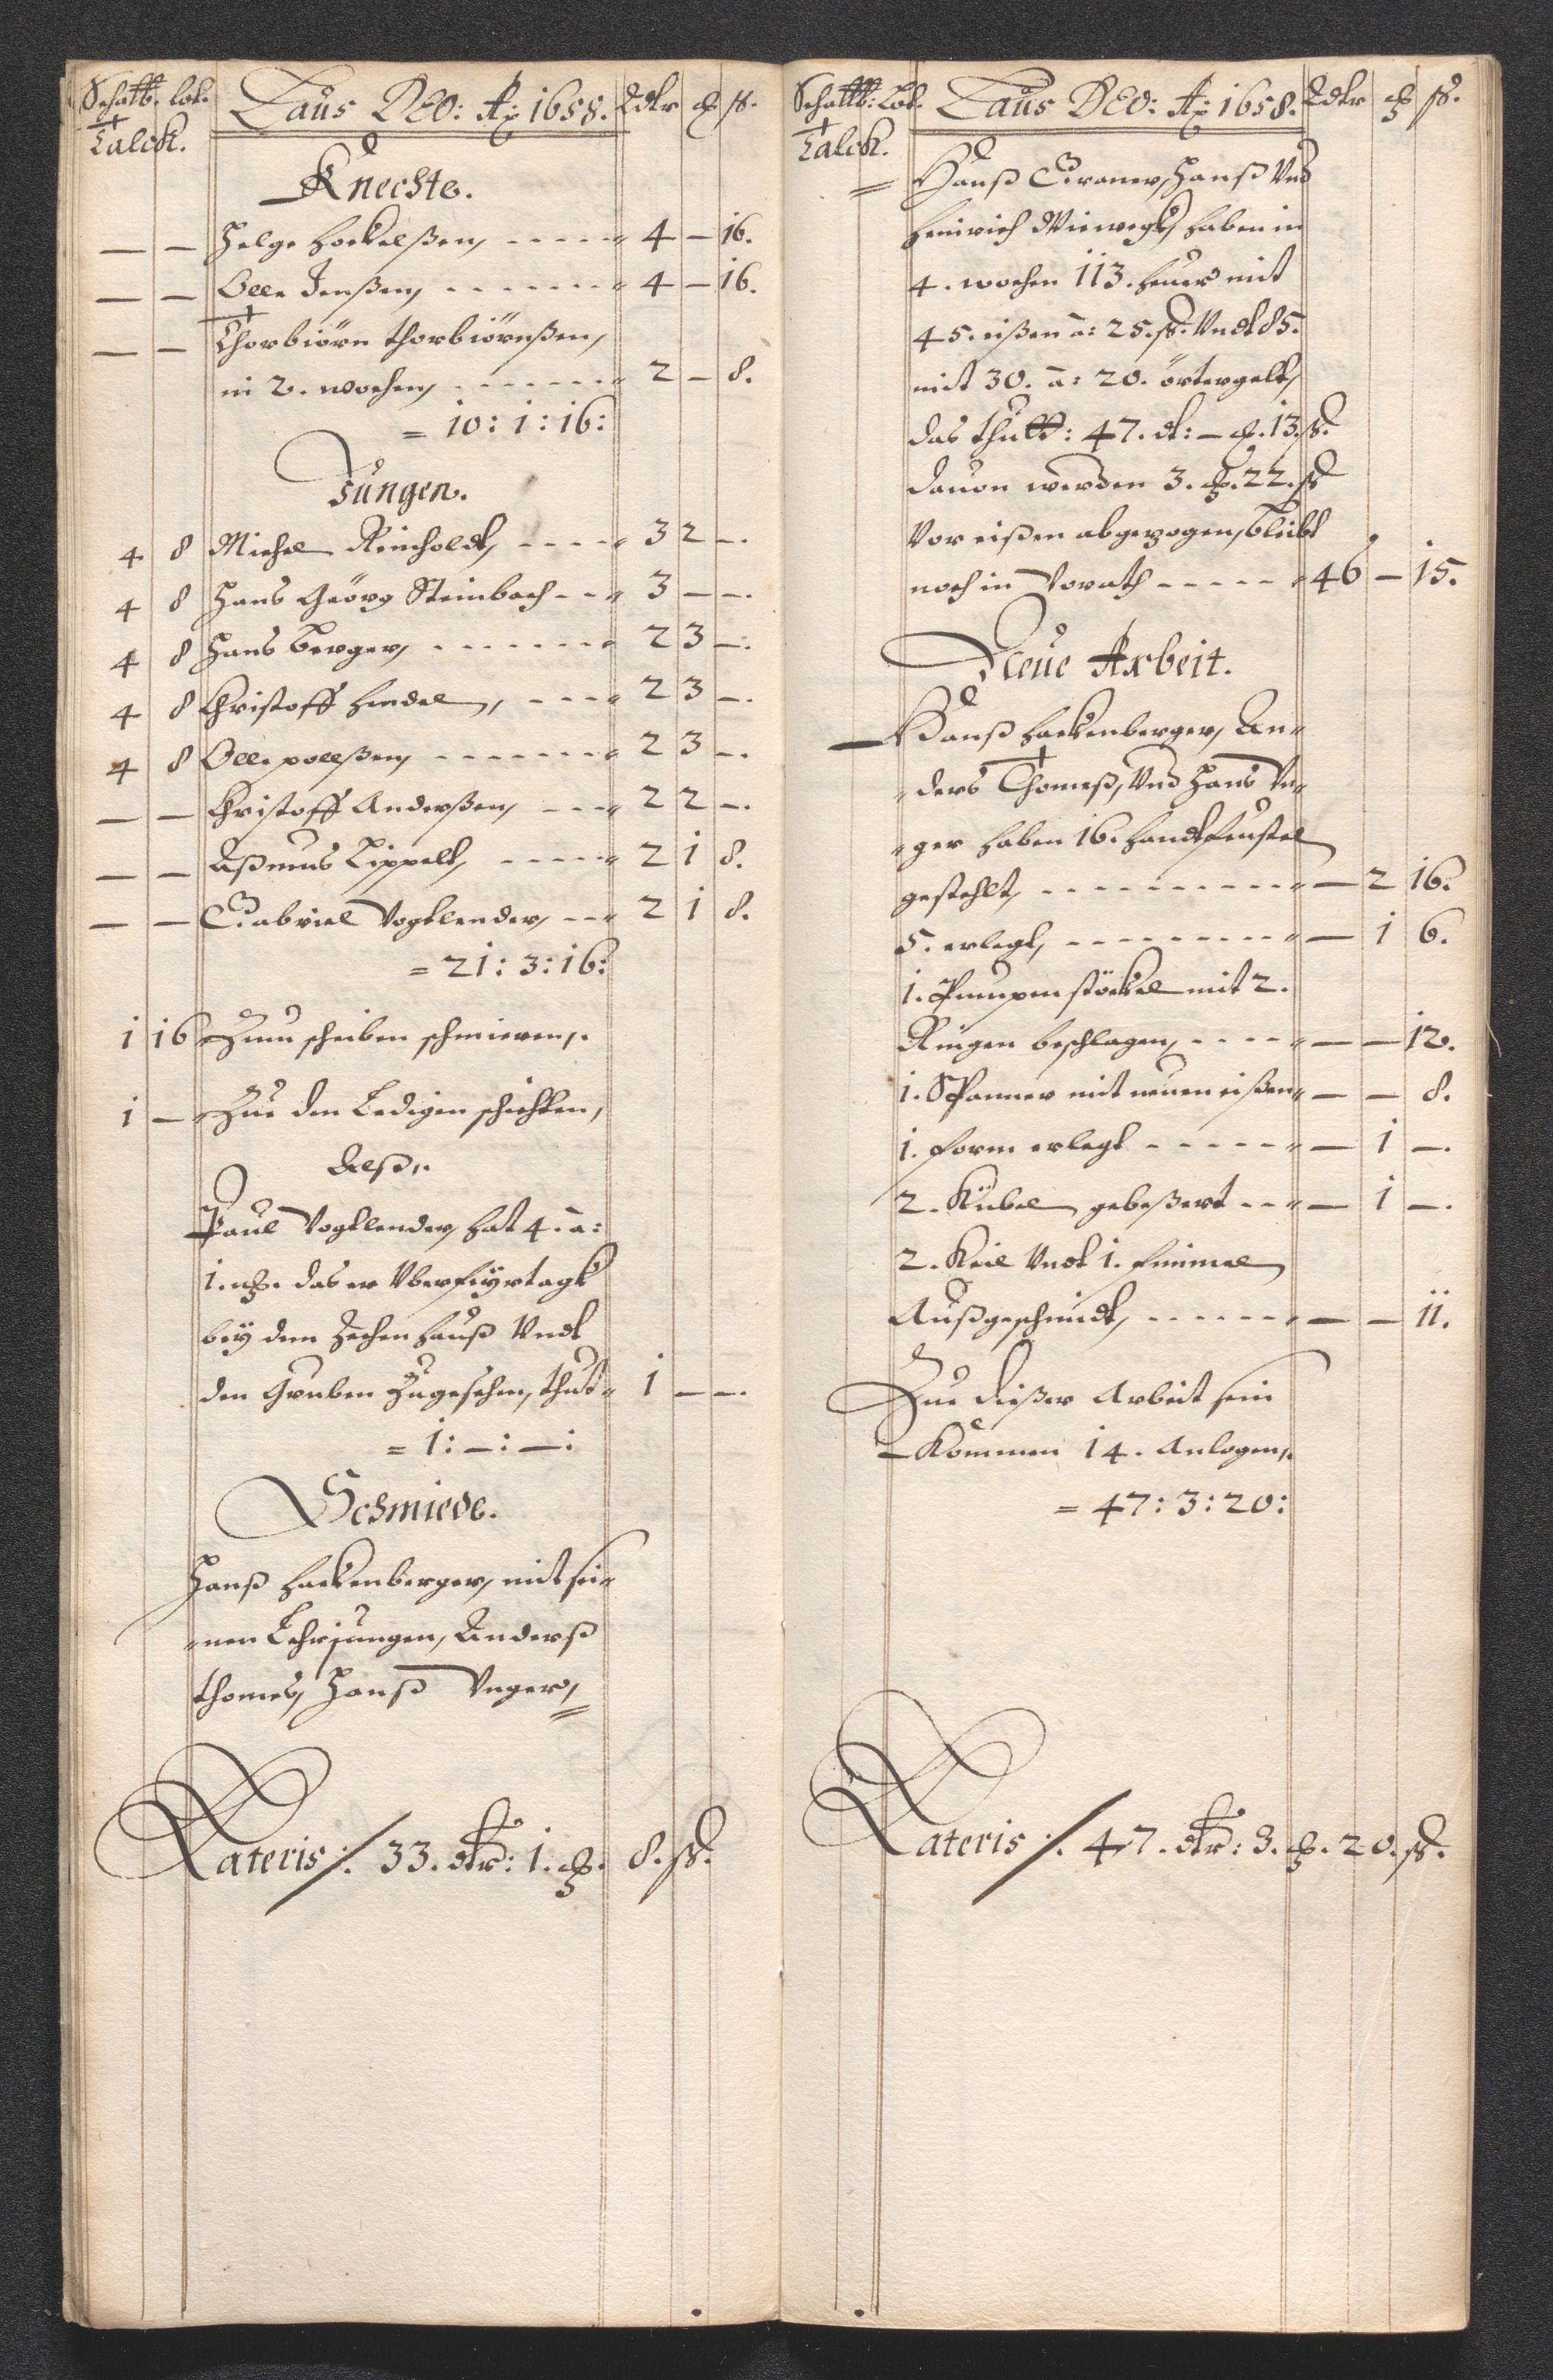 Schalb. lot. Laus DEO: Ao: 1658. Rdlr ȹ ß.
Talck.
Knechte.
— — Helge Hockelßen, - - - - - 4 — 16.
— — Olle Jenßen, - - - - - - - 4 — 16.
— — Thorbiörn thorbiörnßen,
in 2. wochen, - - - - - - - 2 — 8.
= 10: 1: 16:
Jungen.
4 8 Michel Reinholdt, - - - - 3 2 —.
4 8 Hans Geörg Steinbach - - 3 — —.
4 8 Hans berger, - - - - - - - 2 3 —.
4 8 Christoff Hendel, - - - 2 3 —.
4 8 Olle poelßen, - - - - - - - 2 3 —.
— — Christoff Anderßen, - - - 2 2 —.
— — Aßmus Lippelt, - - - - - 2 1 8.
— — Gabriel Vogtlender, - - - 2 1 8.
= 21: 3: 16:
1 16 Zum scheiben schmieren,.
1 — Zue den Ledigen schichten,
Alß,.
Paul Vogtlender, hat 4. a:
1. ȹ. das er Vber feÿrtagk
beÿ dem Zechen hauß Vndt
den Gruben Zugesehen, thut 1 — —.
= 1: —: —:
Schmiede.
Hanß Hackenberger, mit sei-
-nen Lehrjungen, Anderß
thomes, Hanß Vnger,
Lateris:/. 33. dlr: 1. ȹ. 8. ß.
Schalb: Lot. Laus DEO: Ao: 1658. Rdlr ȹ ß.
Talck.
= Hanß Craner, Hanß Vnd
Heinrich Miewegk, haben in
4. wochen 113. heuer mit
45. eißen a: 25. ß. Vndt 85.
mit 30. a: 20. örtergelt,
das thutt: 47. dt: — ȹ. 13. ß.
dauon werden 3. ȹ. 22. ß
Vor eißen abgezogen, bleibt
noch in Vorath - - - - - 46 — 15.
Neue Arbeit.
— Hanß Hackenberger, An-
-ders Thomeß, Vnd Hans Vn-
-ger haben 16. handtfeustel
gestehlt, - - - - - - - - - - — 2 16.
5. erlegt, - - - - - - - - - — 1 6.
1. Pumpen stöckel mit 2.
Ringen beschlagen, - - - - — — 12.
1. Spanner mit neuen eißen — — 8.
1. form erlegt - - - - - - — 1 —.
2. Kübel gebeßert - - - — 1 —.
2. Keil Vndt 1. fimmel
Außgeschmidt, - - - - - - — — 11.
Zue dießer Arbeit sein
— Kommen 14. Anlagen,.
= 47: 3: 20:
Lateris:/. 47. dlr: 3. ȹ. 20. ß.